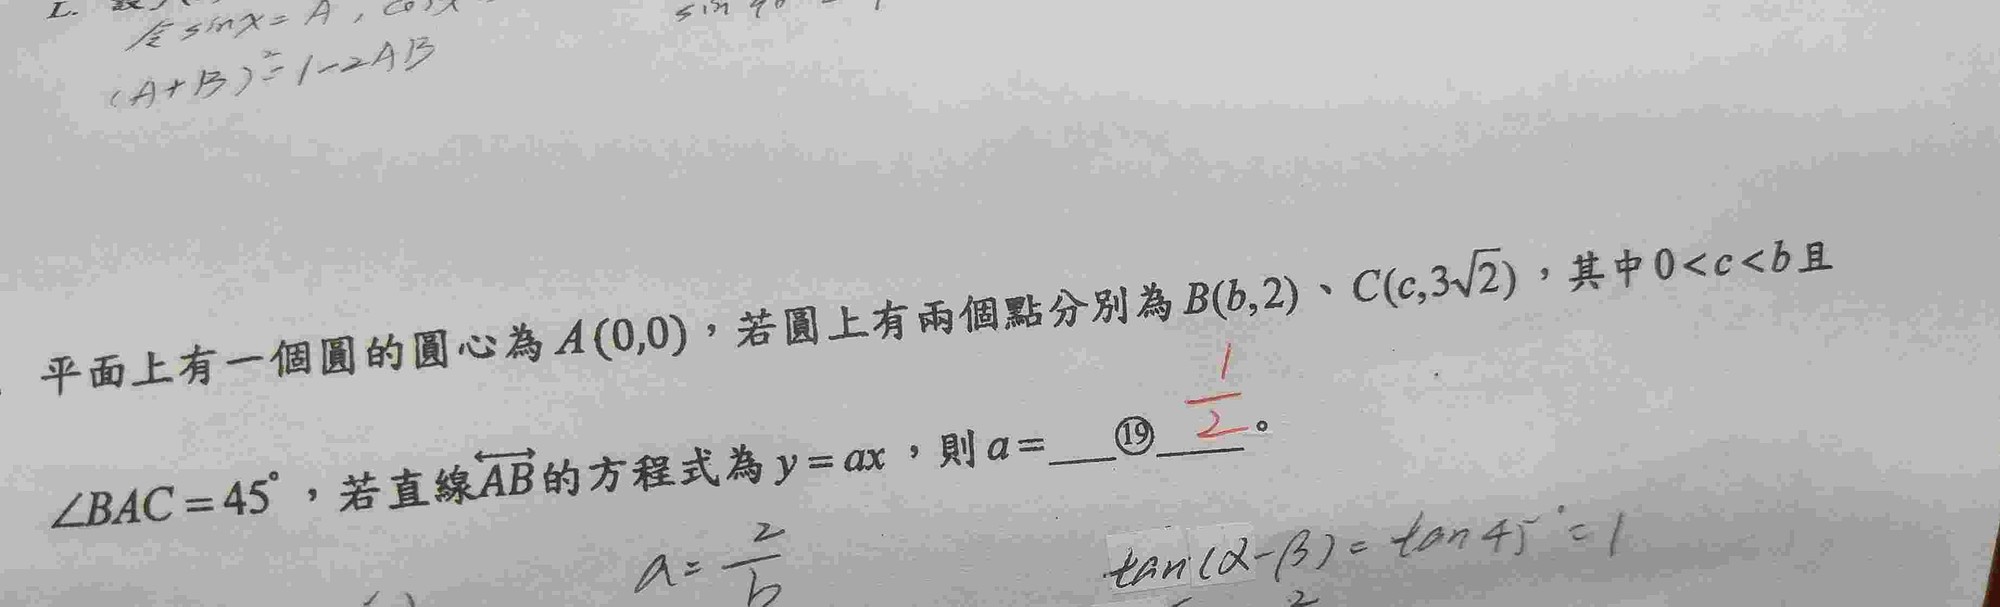 令 sinx = A , cosx
(A+B)²=1-2AB
平面上有一個圓的圓心為 A(0,0),若圓上有兩個點分別為 B(b,2)、C(c,3√2),其中 0<c<b 且
1/2
∠BAC=45°,若直線 AB 的方程式為 y=ax,則 a=___⑲___。
a= 2/b
tan(α-β)=tan45°=1
2